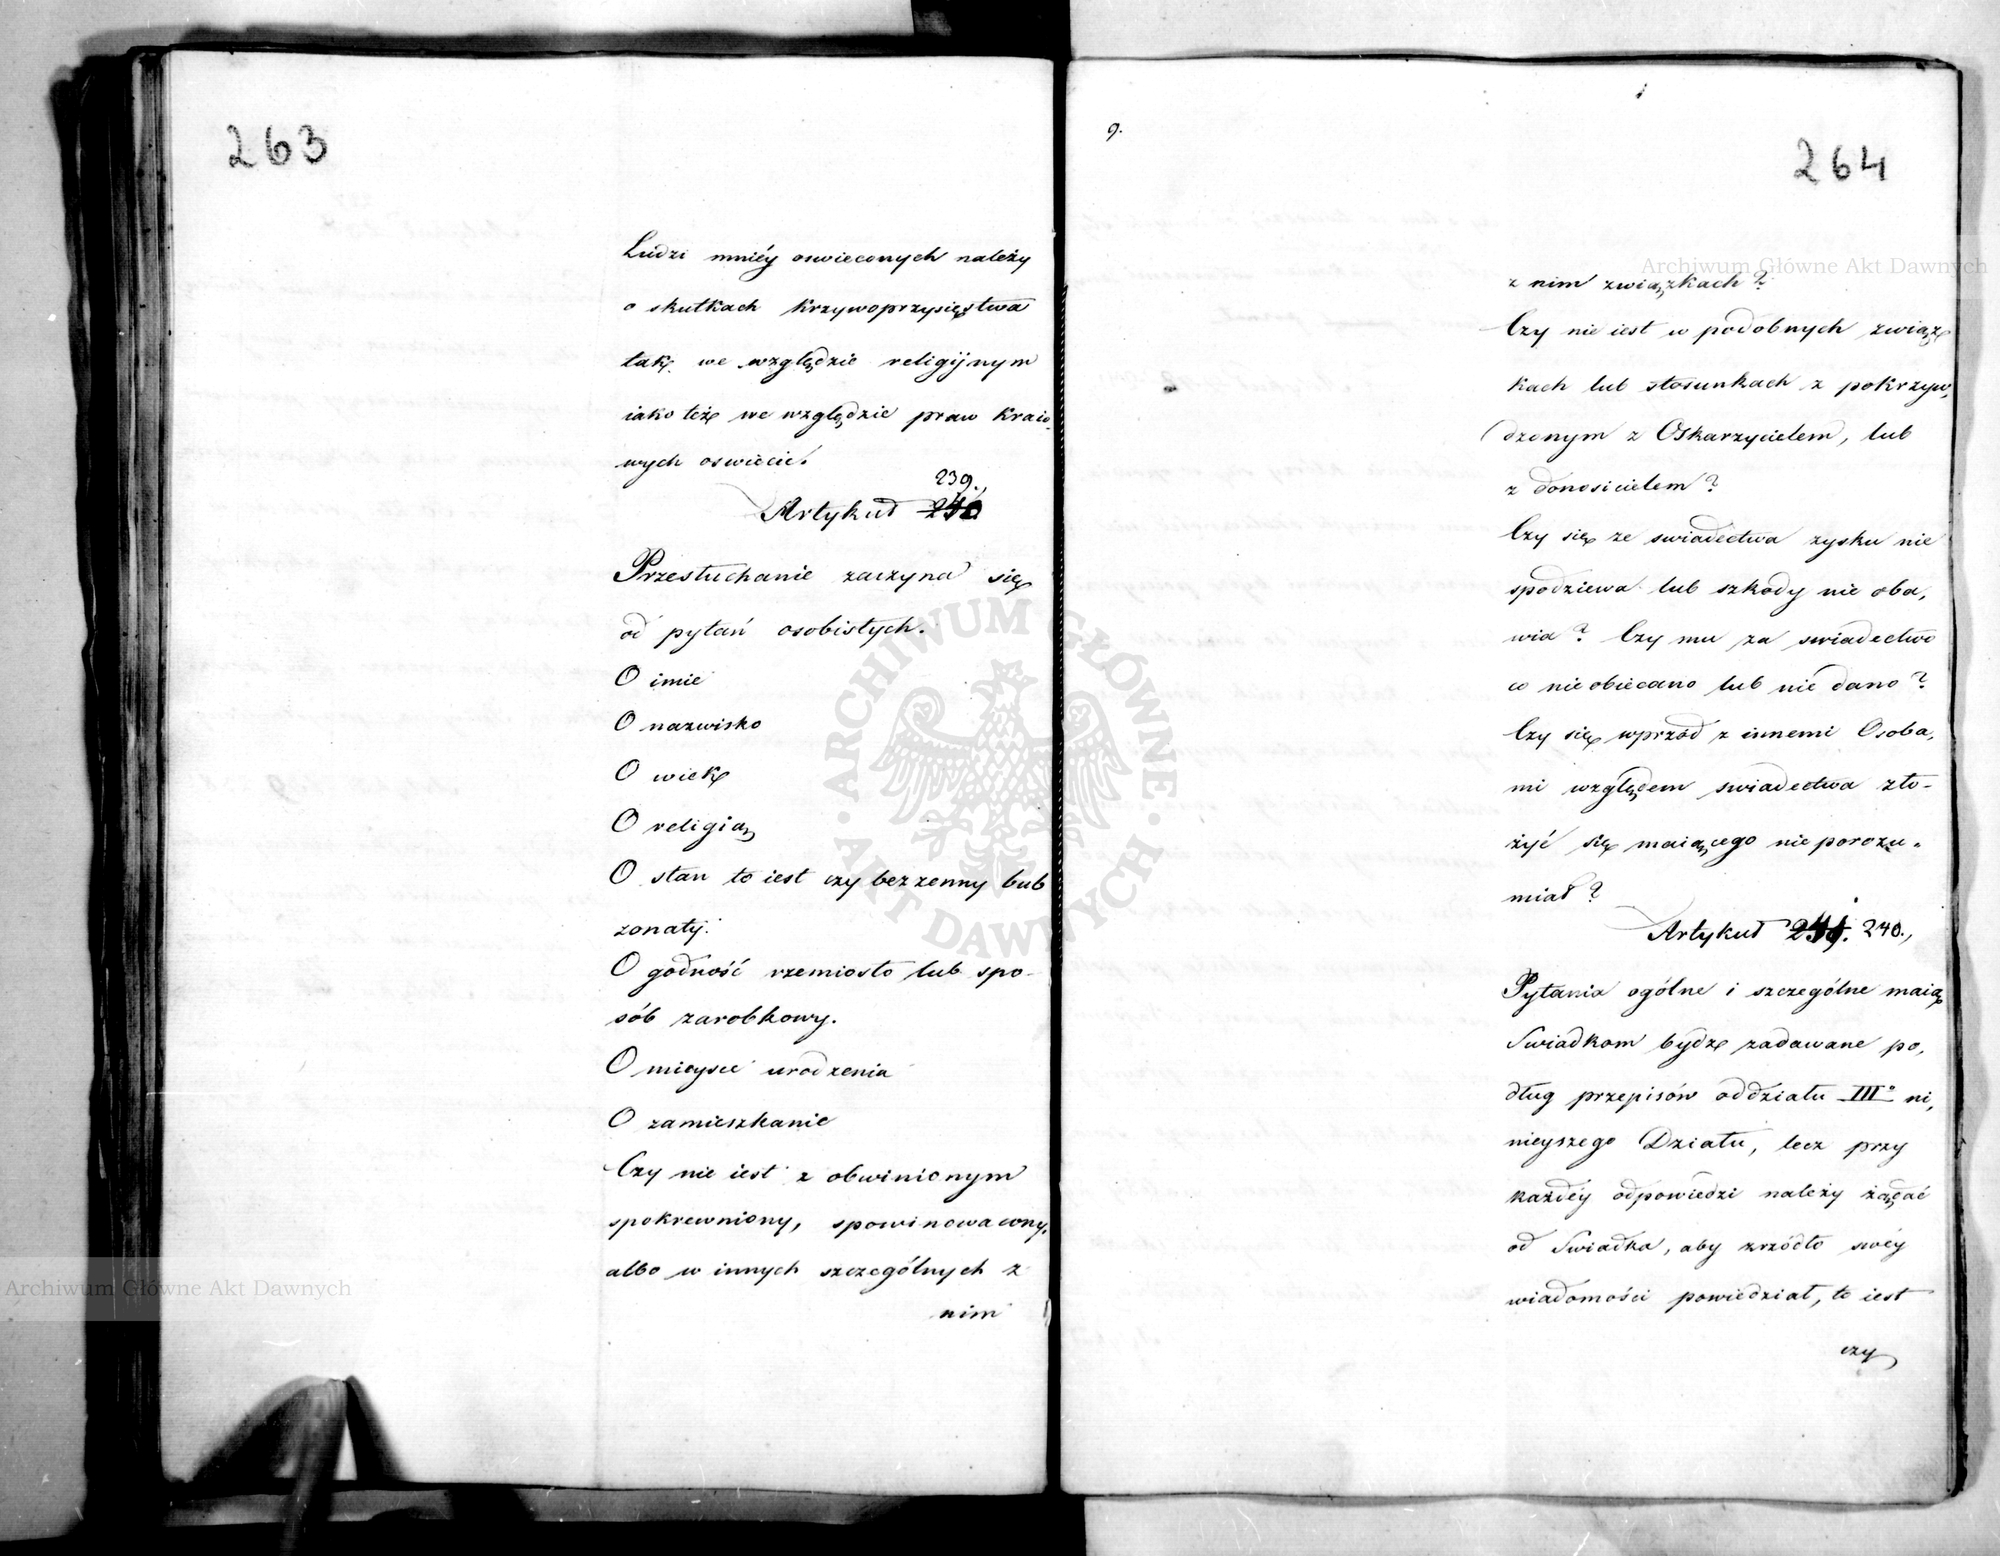 263
Ludzi mniéy oswieconych należy
o skutkach krzywoprzysięstwa
tak we względzie religijnym
iako też we względzie praw kraio,
wych oswiecić.
239.,
Artykuł 240
Przesłuchanie zaczyna się
od pytań osobistych.
O imie
O nazwisko
O wiek
O religią
O stan to iest czy bezzenny lub
zonaty.
O godność rzemiosło lub spo-
sób zarobkowy.
O mieysce urodzenia
O zamieszkanie
Czy nie iest z obwinionym
spokrewniony, spowinowacony,
albo w innych szczególnych z
nim
9.
264
z nim związkach?
Czy nie iest w podobnych związ
kach lub stosunkach z pokrzyw,
dzonym z Oskarzycielem, lub
z donosicielem?
Czy się ze swiadectwa zysku nie
spodziewa lub szkody nie oba,
wia? Czy mu za swiadectwo
co nie obiecano lub nie dano?
Czy się wprzód z innemi Osoba,
mi względem swiadectwa zło-
żyć się maiącego nie porozu-
miał?
Artykuł 241. 240.,
Pytania ogólne i szczególne maią
Swiadkom bydź zadawane po,
dług przepisów oddziału III° ni,
nieyszego Działu, lecz przy
każdéy odpowiedzi należy żądać
od Swiadka, aby zrzódło swéy
wiadomości powiedział, to iest
czy
Archiwum Główne Akt Dawnych
Archiwum Główne Akt Dawnych
· ARCHIWUM GŁÓWNE · AKT DAWNYCH